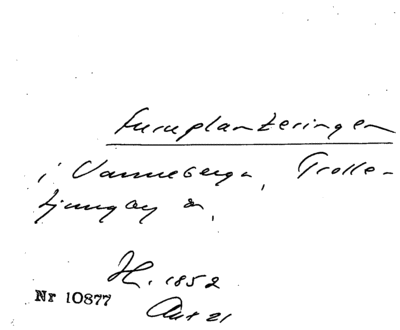 Furuplanteringen
i Vanneberga, Trolle-
Ljungby m.
H. 1852
Nr 10877
Aut 21